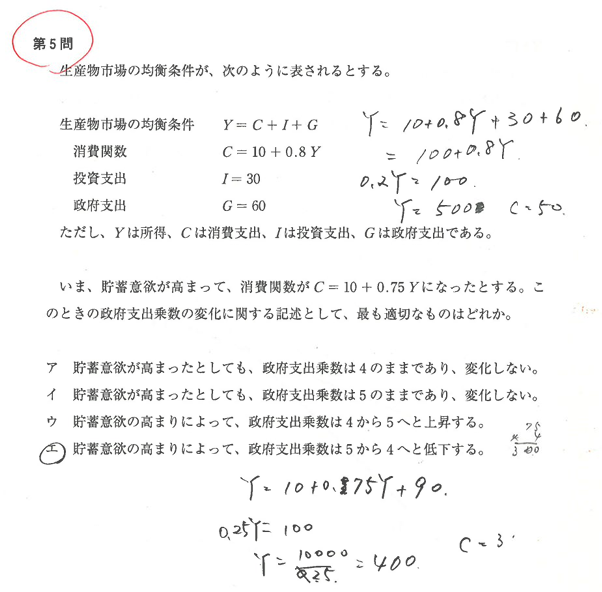 第5問
生産物市場の均衡条件が、次のように表されるとする。
生産物市場の均衡条件 Y = C + I + G
Y = 10+0.8Y+30+60
消費関数 C = 10 + 0.8 Y
= 100+0.8Y
投資支出 I = 30
0.2Y = 100.
政府支出 G = 60
Y = 500 C = 50.
ただし、Yは所得、Cは消費支出、Iは投資支出、Gは政府支出である。
いま、貯蓄意欲が高まって、消費関数がC = 10 + 0.75 Yになったとする。こ
のときの政府支出乗数の変化に関する記述として、最も適切なものはどれか。
ア 貯蓄意欲が高まったとしても、政府支出乗数は4のままであり、変化しない。
イ 貯蓄意欲が高まったとしても、政府支出乗数は5のままであり、変化しない。
ウ 貯蓄意欲の高まりによって、政府支出乗数は4から5へと上昇する。
エ 貯蓄意欲の高まりによって、政府支出乗数は5から4へと低下する。
75
× 4
300
Y = 10+0.75Y+90.
0.25Y = 100
Y = 10000/025. = 400.
C = 3